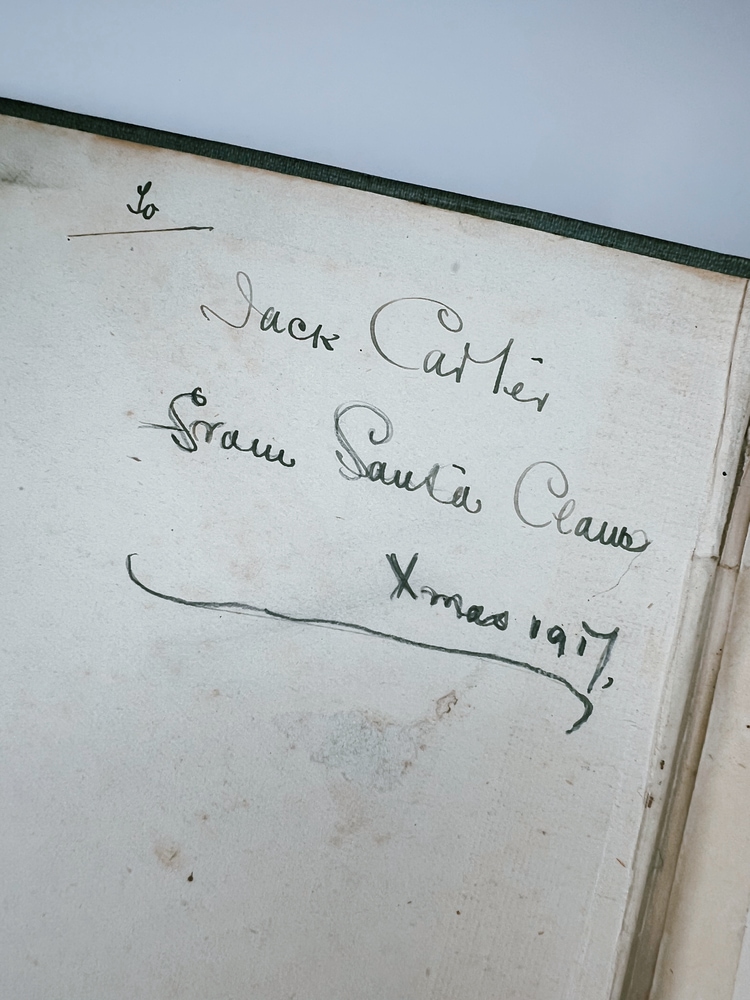 To
Jack Carter
From Santa Claus
Xmas 1917.